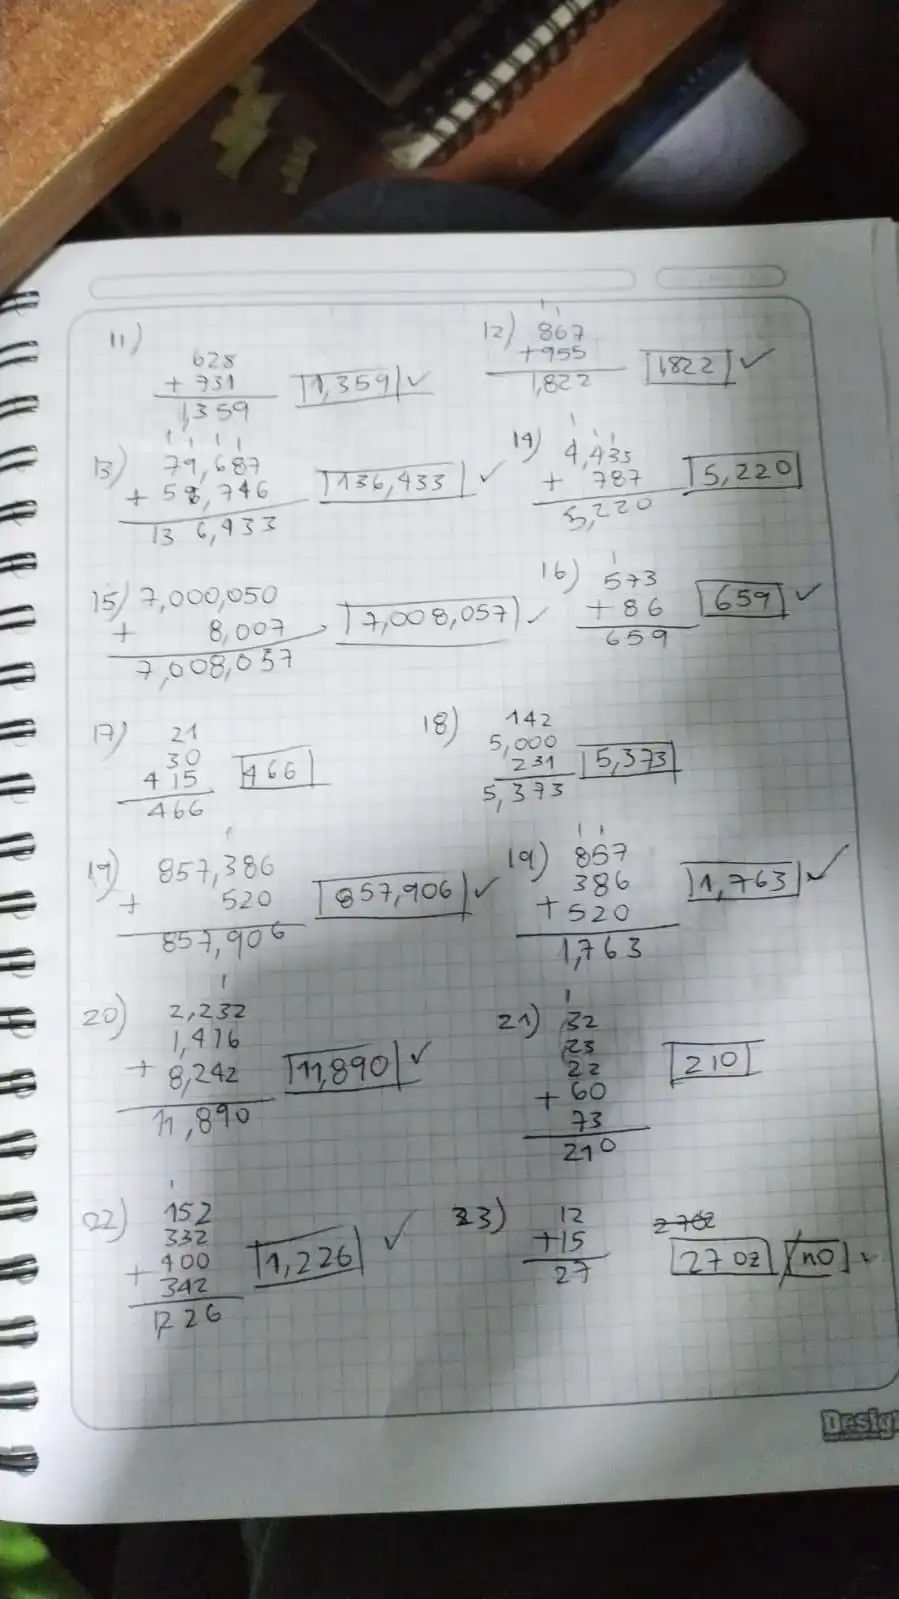 11)
628
+ 731
1,359
1,359 ✓
12)
1 1
867
+955
1,822
1,822 ✓
13)
1 1 1 1
79,687
+ 56,746
136,433
136,433 ✓
14)
1 1 1
4,433
+ 787
5,220
5,220
15) 7,000,050
+ 8,007
7,008,057
7,008,057 ✓
16)
1
573
+ 86
659
659 ✓
17)
21
30
415
466
466
18)
142
5,000
231
5,373
5,373
19)
1
857,386
+ 520
857,906
857,906 ✓
19)
1 1
857
386
+ 520
1,763
1,763 ✓
20)
1
2,232
1,416
+ 8,242
11,890
11,890 ✓
21)
1
32
23
22
+ 60
73
210
210
22)
1
152
332
+ 400
342
1226
1,226 ✓
23)
12
+15
27
27 oz / no ✓